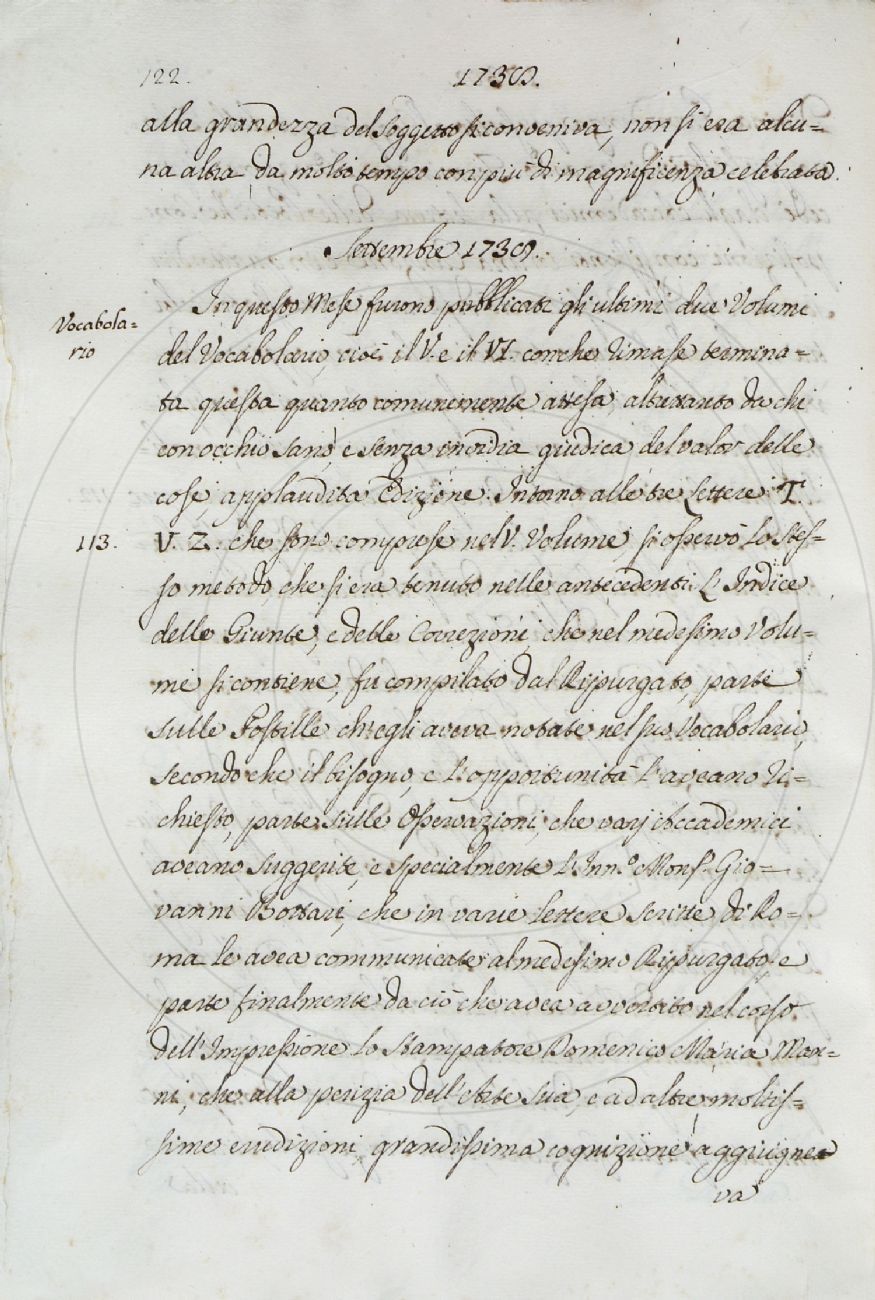 122. 1738.
alla grandezza del soggetto si conveniva, non si era alcu=
na altra da molto tempo con più di magnificenza celebrata.
Settembre 1738.
In questo Mese furono pubblicati gli ultimi due Volumi
Vocabola=
rio
del Vocabolario, cioè il V. e il VI. con che rimase termina=
ta questa quanto comunemente attesa, altrettanto da chi
con occhio sano, e senza invidia giudica del valor delle
cose, applaudita Edizione. Intorno alle tre Lettere T.
113.
V. Z. che sono comprese nel V. Volume, si osservò lo stes=
so metodo, che si era tenuto nelle antecedenti. L'Indice
delle Giunte, e delle Correzioni, che nel medesimo Volu=
me si contiene, fu compilato dal Ripurgato, parte
sulle Postille ch'egli aveva notate nel suo Vocabolario,
secondo che il bisogno, e l'opportunità l'aveano ri=
chiesto, parte sulle Osservazioni, che varj Accademici
aveano suggerite, e specialmente l'Inn.º Mons.r Gio=
vanni Bottari, che in varie lettere scritte di Ro=
ma le avea communicate al medesimo Ripurgato, e
parte finalmente da ciò che avea avvertito nel corso
dell'Impressione lo Stampatore Domenico Maria Man=
ni, che alla perizia dell'Arte sua, e ad altre moltis=
sime erudizioni, grandissima cognizione aggiugnea
va